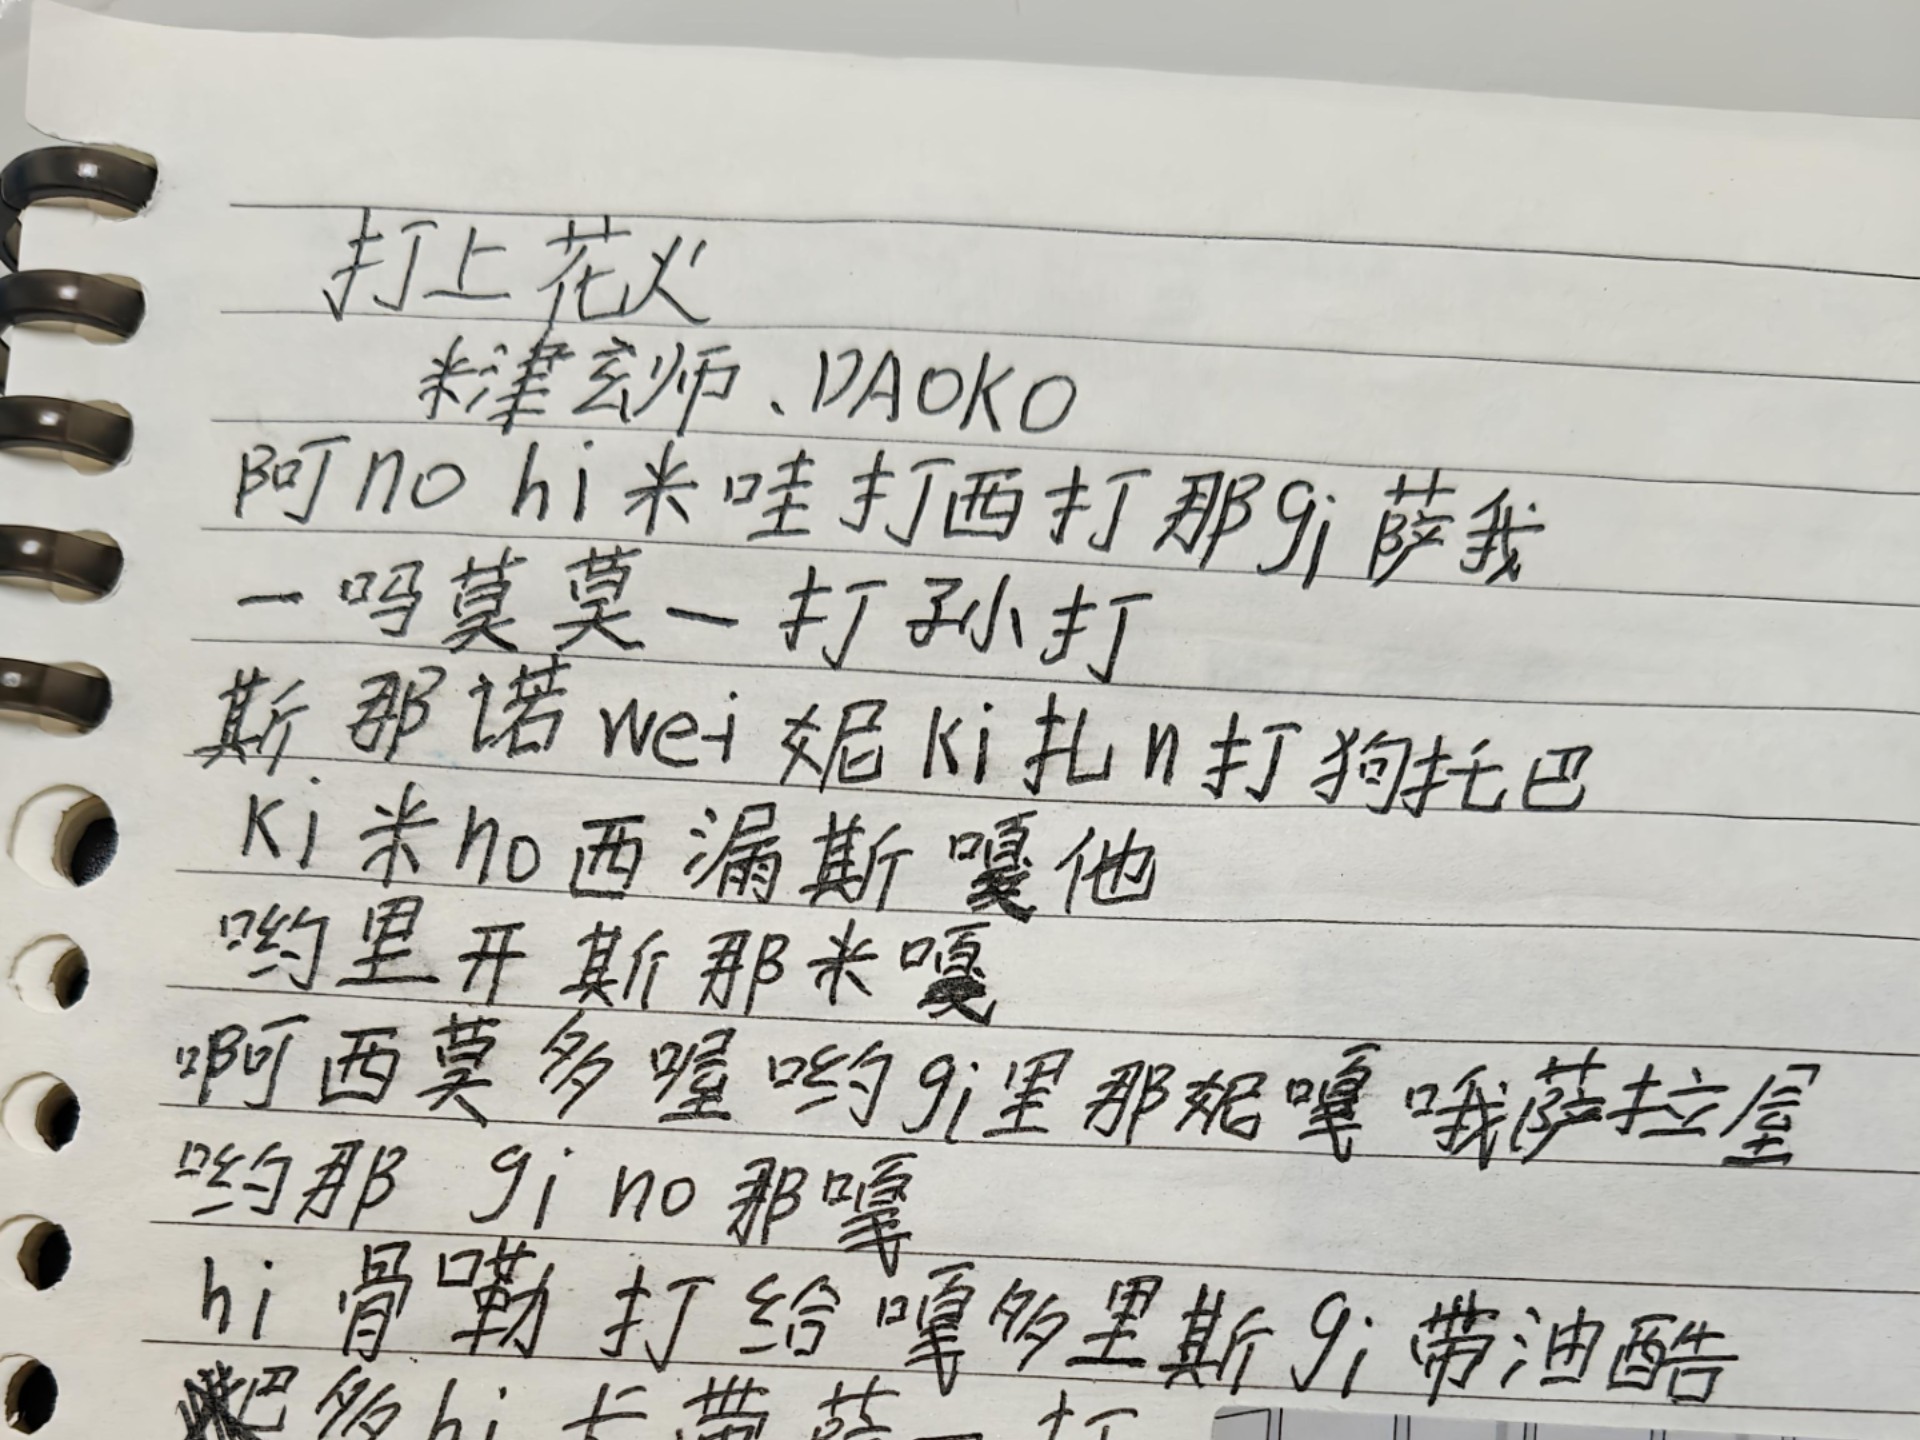 打上花火
米津玄师、DAOKO
阿no hi米哇打西打那gi萨我
一吗莫莫一打孙打
斯那诺wei妮ki扎n打狗托巴
Ki米no西漏斯嘎他
哟里开斯那米嘎
啊西莫多喔哟gi里那妮嘎哦萨拉屋
哟那 gi no那嘎
hi骨嘞打给嘎多里斯gi带油酷
多hi卡带萨一打